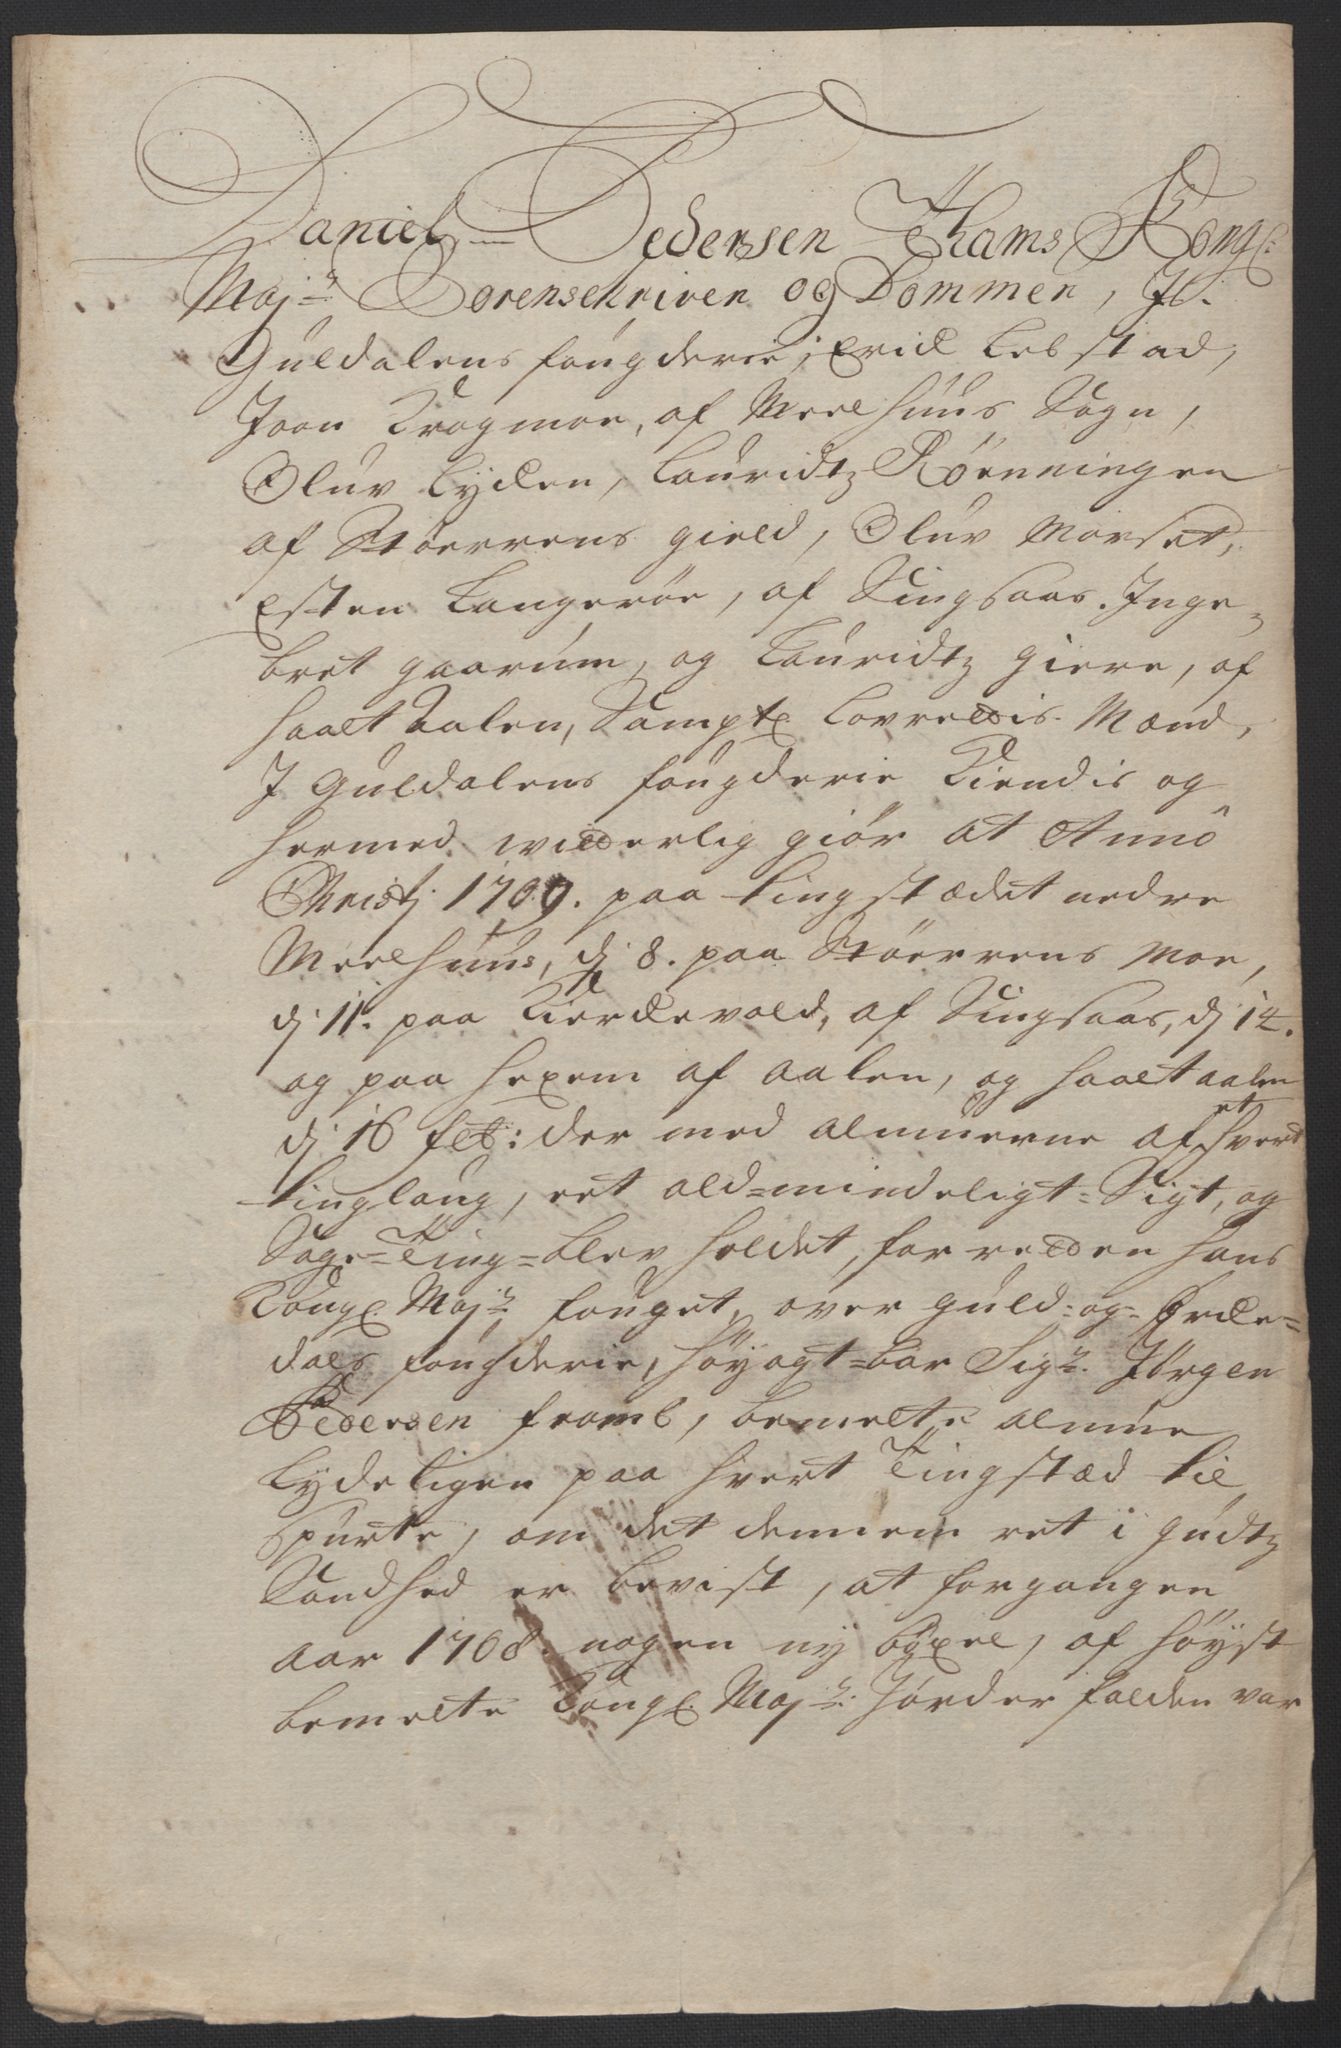 Daniel Pedersen Thams Kongl:
Maj:ts Sorenschriver og Dommer, J
Guldalens fougderie; Erich Lebstad,
Joen Krogmoe, af Meelhuus Sogn,
Oluv Lychen, Lauridtz Röenningen
af Stöerrens gield, Oluv Morset,
Esten Langeröe, af Singsaas. Jnge-
bret gaarum, og Lauridtz giere, af
Haaltaalen, Samptl Lovrettis Mænd,
J Guldalens fougderie Kiendis og
hermed witterlig giör at Annô
Christj 1709. paa tingstædet nedre
Meelhuus, dj 8. paa Stöerrens Moe,
dj 11. paa Kierchevold, af Singsaas, dj 14.
og paa Hexem af aalen, og Haaltaalen
dj 16 feb: der med almuerne af et hvert
tinglaug, ret ald=mindeligt=Sigt, og
Sage=Ting=blev holdet, for retten Hans
Kongl Maj:ts fouget, over guld= og Orche=
dals fougderie, Höyagt=bar Sigr. Jörgen
Pedersen fromb, bemelte almue
Lydeligen paa hvert Tingstæd til
spurte, om det dennem ret i gudtz
Sandhed er bevist, at forgangen
aar 1708. nogen ny böxel, af höyst
bemelte Kongl Maj:ts Jörder falden var